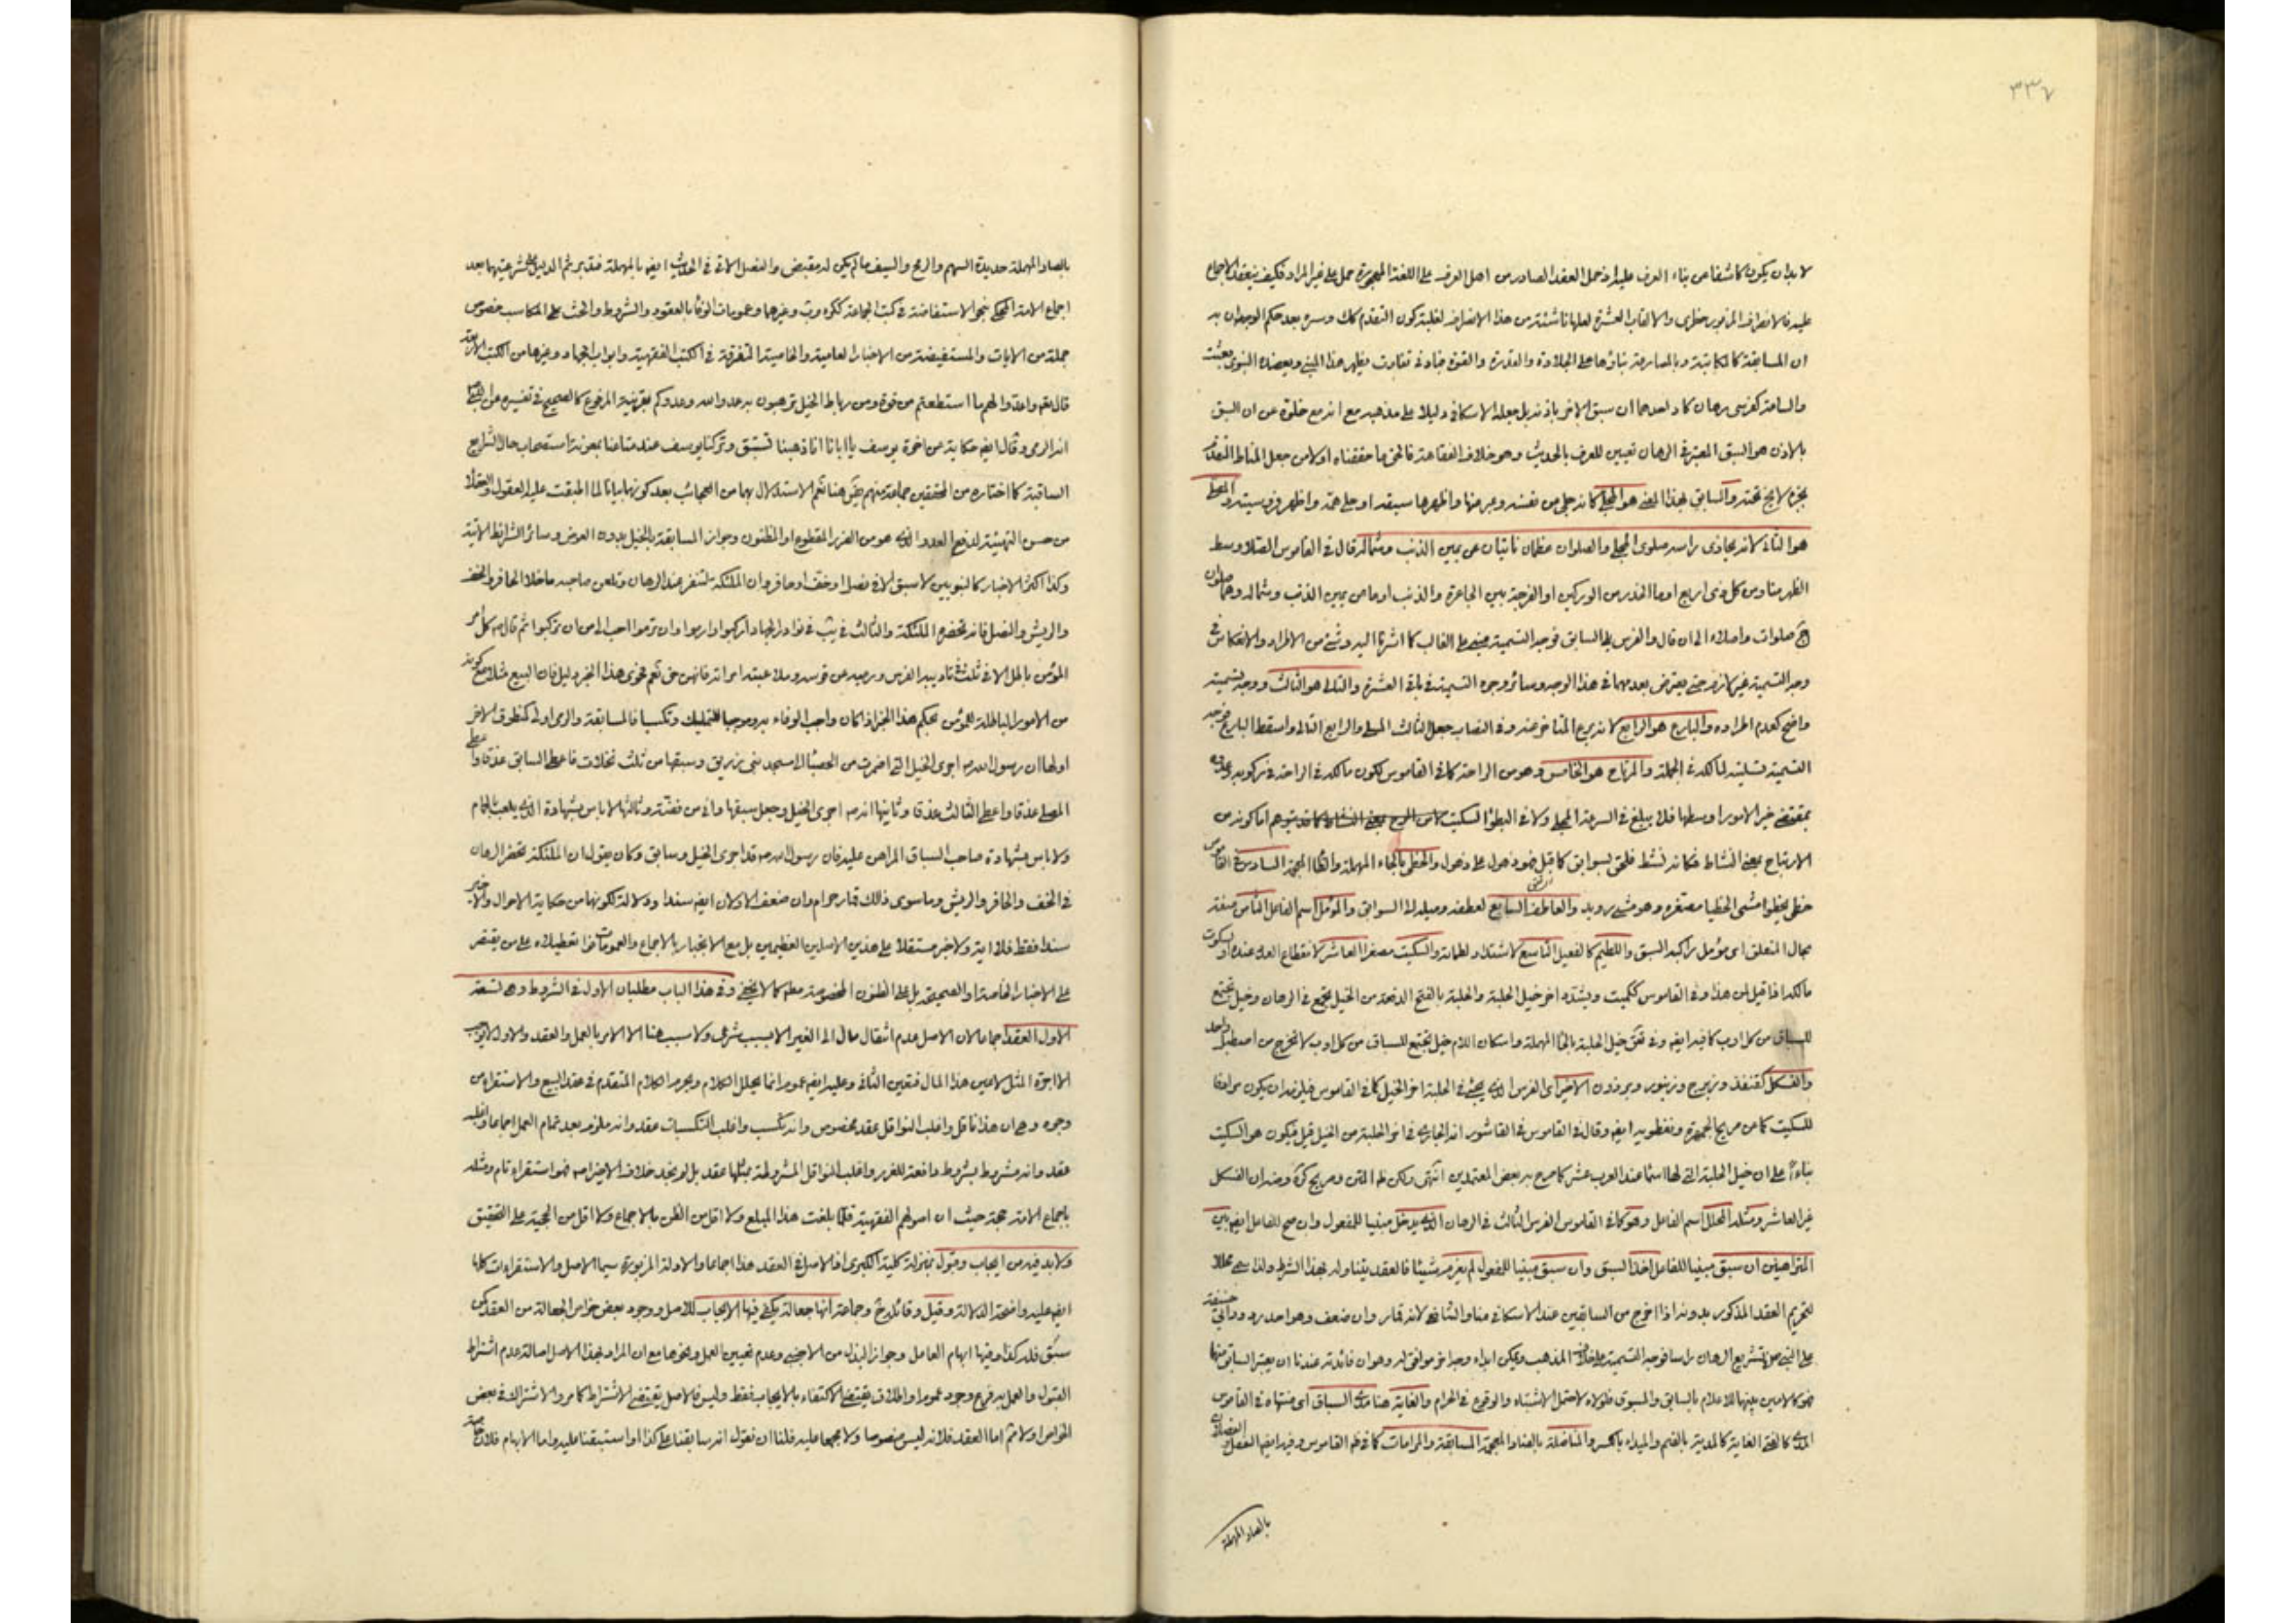 ٣٣٧
لابد ان يكون كاشفا عن بناء العرف عليه اذ حمل العقد الصادر من اهل العرف على اللغة المهجورة حمل على غير المراد فكيف ينعقد الاجماع
عليه فالانصراف المزبور والالقاب العشرة لعلها ناشئة من هذا الانصراف لغلبة كون التقدم كك وسره بعد حكم الوجدان به
ان المسابقة كالمكاتبة وبالمصارعة بناؤها على الجلادة والقدرة والقوة فبادنى تفاوت يظهر هذا المبنى ويعضده النبوى بعثت
والساعة كفرسى رهان كاد احدهما ان سبق الاخر باذنه بل جعله الاسكافى دليلا على مذهبه مع انه مع خلوه عن ان السبق
بالاذن هو السبق المعتبر فى الرهان تعيين للعرف بالحديث وهو خلاف الفقاهة فالحق ما حققناه اولا من جعل المناط التقدم
بجزء لايخ تحته والسابق بهذا المعنى هو المجلى كانه جلى من نفسه وعبر منها واظهرها سبقه او جلى همه واظهر فروسيته والمصلى
هو الثانى لانه يحاذى راسه صلوى المجلى والصلوان عظمان نابتان عن يمين الذنب وشماله قال فى القاموس الصلا وسط
الظهر منا ومن كل ذى اربع او ما انحدر من الوركين او الفرجة بين الجاعرة والذنب او ما عن يمين الذنب وشماله وهما صلوان
ج صلوات واصلاء الى ان قال والفرس تلى السابق فوجه التسمية مبنى على الغالب كما اشرنا اليه وشئ من الاطراد والانعكاس فى
وجه التسمية غير لازم حتى يعترض بعدمهما فى هذا الوجه وسائر وجوه التسمية فى باقى العشرة والتالى هو الثالث ووجه تسميته
واضح كعدم اطراده والبارع هو الرابع لانه يبرع المتاخر عنه وفى النصاب جعل الثالث المسلى والرابع التالى واسقط البارع فوجه
التسمية تسليته لمالكه فى الجملة والمرتاح هو الخامس وهو من الراحة كما فى القاموس لكون مالكه فى الراحة فى ركوبه وعدوه
بمقتضى خير الامور اوسطها فلا يبلغ فى السرعة المجلى ولا فى البطؤ السكيت اما كونه من
الارتياح بمعنى النشاط فكانه نشط فلحق بسوابق كما قيل والحظى بالحاء المهملة والظاء المعجمة السادس فى القاموس
حظى يحظو مشى الحظيا مصغره وهو مشى رويد والعاطف السابع لعطفه وميله الى السوابق والمؤمل اسم الفاعل الثامن صفة
بحال المتعلق اى مؤمل راكبه السبق واللطيم كالفعيل التاسع والسكيت مصغرا العاشر لانقطاع العدد عنده او لسكوت
مالكه اذا قيل لمن هذا وفى القاموس ككميت ويشدد اخر خيل الحلبة والحلبة بالفتح الدفعة من الخيل تجمع فى الرهان وخيل تجتمع
للسباق من كل اوب كما فيه ايضا وفى خيل الحلبة بالحاء المهملة واسكان اللام خيل تجتمع للسباق من كل اوب لا تخرج من اصطبل واحد
والفسكل كقنفذ وزبرج وزنبور وبرذون الاخير اى الفرس الذى يجئ فى الحلبة اخر الخيل كما فى القاموس فيلزمه ان يكون مرادفا
للسكيت كما عن صريح الجمهرة ونفطويه ايضا وقال فى القاموس فى القاشور انه الجارى فى اخر الحلبة من الخيل قيل فيكون هو السكيت
بناءاً على ان خيل الحلبة التى لها اسما عند العرب عشر كما صرح به بعض المعتمدين انتهى ولكن ظاهر المتن وصريح كره وضه ان الفسكل
غير العاشر ومثله المحلل اسم الفاعل وهو كما فى القاموس الفرس الثالث فى الرهان الذى يدخل مبنيا للمفعول وان صح للفاعل ايضا بين
المتراهنين ان سبق مبنيا للفاعل اخذ السبق وان سبق مبنيا للمفعول لم يغرم شيئا فالعقد يتناوله بهذا الشرط ولذا سمى محللا
لتحريم العقد المذكور بدونه اذا اخرج من السابقين عند الاسكافى منا والشافعى لانه قمار وان ضعف وهو احد رده ورد ابى حنيفة
على النبى ص تشريع الرهان راسا فوجه التسمية على خلاف المذهب ويمكن ابداء وجه اخر موافق له وهو ان فائدته عندنا ان يعتبر السابق منهما
فهو كالامين بينهما للاعلام بالسابق والمسبوق فلولاه لاحتمل الاشتباه والوقوع فى الحرام والغاية هنا مدى السباق اى منتهاه فى القاموس
المدى كالفتى الغاية كالمدية بالضم والميداء بالكسر والمناضلة بالضاد المعجمة المسابقة والمرامات كما فى ظاهر القاموس وفيه ايضا النصل
بالصاد المهملة
بالصاد المهملة حديدة السهم والرمح والسيف ما لم يكن له مقبض والنصل الاتى فى الحديث ايضا بالمهملة فتدبر ثم الدليل على شرعيتهما بعد
اجماع الامة المحكى بنحو الاستفاضة فى كتب الجماعة ككره وغيرهما وعمومات الوفاء بالعقود والشروط والحث على المكاسب خصوص
جملة من الايات والمستفيضة من الاخبار العامية والخاصية المتفرقة فى الكتب الفقهية وابواب الجهاد وغيرها من الكتب الاربعة
قال تعالى واعدوا لهم ما استطعتم من قوة ومن رباط الخيل ترهبون به عدو الله وعدوكم بقرينة المرفوع كالصحيح فى تفسيره عن النبى ص
انه الرمى وقال ايضا حكاية عن اخوة يوسف يا ابانا انا ذهبنا نستبق وتركنا يوسف عند متاعنا بمعونة استصحاب حال الشرايع
السابقة كما اختاره من المحققين جماعة منهم هنا نعم الاستدلال بهما من العجائب بعد كونهما بيانا لما اطبقت عليه العقول والعقلا
من حسن التهيئة لدفع العدو الذى هو من الضرر المقطوع او المظنون وجواز المسابقة بالخيل بدون العوض وسائر الشرائط الاتية
وكذا اكثر الاخبار كالنبويين لا سبق الا فى نصل او خف او حافر وان الملئكة لتنفر عند الرهان وتلعن صاحبه ما خلا الحافر والخف
والريش والنصل فانه تحضره الملئكة والثالث فى نوادر الجهاد اركبوا وارموا وان ترموا احب الى من ان تركبوا ثم قال ص كل امر
المؤمن باطل الا فى ثلث فى تاديبه الفرس ورميه عن قوسه وملاعبته امراته فانهن حق نعم فحوى هذا الخبر دليل فان البيع مثلا مع كونه
من الامور الباطلة للمؤمن بحكم هذا الخبر اذا كان واجب الوفاء به وموجبا للتمليك وتكسبا فالمسابقة والرمى اولى كمنطوق الاخر
اولها ان رسول الله ص اجرى الخيل التى اضمرت من الحصبا الى مسجد بنى زريق وسبقها من ثلث نخلات فاعطى السابق عذقا واعطى
المصلى عذقا واعطى الثالث عذقا وثانيها انه ص اجرى الخيل وجعل سبقها واقى من فضة وثالثها لا باس بشهادة الذى يلعب بالحمام
ولا باس بشهادة صاحب السباق المراهن عليه فان رسول الله ص قد اجرى الخيل وسابق وكان يقول ان الملئكة تحضر الرهان
فى الخف والحافر والريش وما سوى ذلك قمار حرام وان ضعف الاولان ايضا سندا ودلالة لكونهما من حكاية الاحوال والاخير
سندا فقط فلا اية ولا خبر مستقلا على هذين الاصلين العظيمين بل مع الانجبار بالاجماع والعمومات على من يقتصر
على الاخبار الخاصة او الصحيحة بل على الظنون المخصوصة مطلقا كما لا يخفى وفى هذا الباب مطلبان الاول فى الشروط وهى تسعة
الاول العقد اجماعا لان الاصل عدم انتقال مال الى الغير الا بسبب شرعى ولا سبب هنا الا الامر بالعمل والعقد والاول لا يوجب
الا اجرة المثل لا عين هذا المال فتعين الثانى وعليه ايضا عموم انما يحلل الكلام ويحرم الكلام المتقدم فى عقد البيع والاستقراء من
وجوه وهى ان هذا ناقل واغلب النواقل عقد مخصوص وانه تكسب واغلب التكسبات عقد وانه ملزوم بعد تمام العمل اجماعا واغلبه
عقد وانه مشروط بشروط دافعة للغرر واغلب النواقل المشروطة بمثلها عقد بل لم نجد خلافه الا ضه فهو استقراء تام ومثله
باجماع الامة حجة حيث ان اصولهم الفقهية قلما بلغت هذا المبلغ ولا اقل من الظن بالاجماع ولا اقل من الحجية على التحقيق
ولابد فيه من ايجاب وقبول بمنزلة كلية الكبرى اذ الاصل فى العقد هذا اجماعا والادلة المزبورة سيما الاصل والاستقراءات كلها
ايضا عليه واضحة الدلالة وقيل وقائله وجماعة انها جعالة يكفى فيها الايجاب للاصل ووجود بعض خواص الجعالة من العقد كمن
سبق فله كذا وفيها ابهام العامل وجواز البذل من الاجنبى وعدم تعيين العمل ونحوها مع ان المراد بهذا الاصل اصالة عدم اشتراط
القبول والعمل به فرع وجود عموم او اطلاق يقتضى الاكتفاء بالايجاب فقط وليس فالاصل يقتضى الاشتراط كما مر والاشتراك فى بعض
الخواص اولا ثم اما العقد فلانه ليس منصوصا ولا مجمعا عليه فلنا ان نقول انه سابقنا على كذا او استبقنا عليه واما الابهام فلان